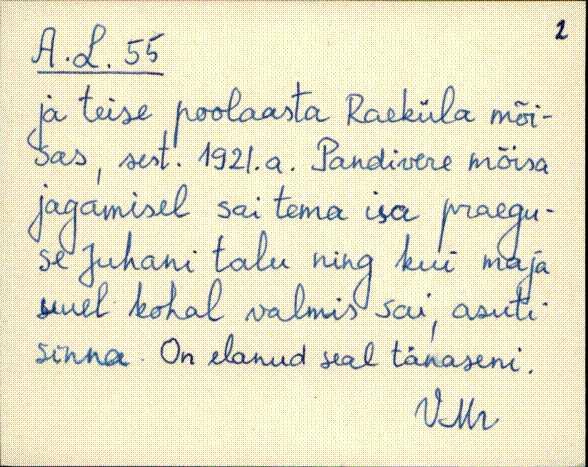 2
A.L. 55
ja teise poolaasta Raeküla mõi-
sas, sest. 1921.a. Pandivere mõisa
jagamisel sai tema isa praegu-
se Juhani talu ning kui maja
uuel kohal valmis sai, asuti
sinna. On elanud seal tänaseni.
VMr